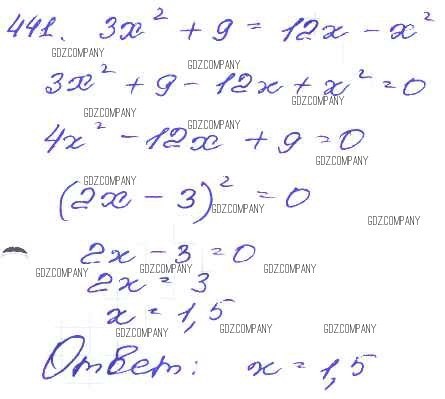 441. 3x² + 9 = 12x - x²
GDZCOMPANY GDZCOMPANY
3x² + 9 - 12x + x² = 0
GDZCOMPANY GDZCOMPANY GDZCOMPANY
4x² - 12x + 9 = 0
GDZCOMPANY GDZCOMPANY
(2x - 3)² = 0
GDZCOMPANY GDZCOMPANY
2x - 3 = 0
GDZCOMPANY GDZCOMPANY GDZCOMPANY
2x = 3
x = 1,5
GDZCOMPANY GDZCOMPANY GDZCOMPANY
Ответ: x = 1,5